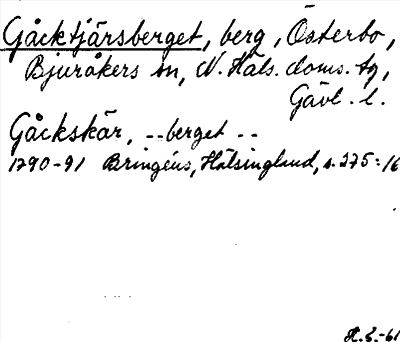 Gåcktjärsberget, berg, Österbo,
Bjuråkers sn, N. Häls. doms. tg,
Gävl. l.
Gåckskär, --berget --
1790-91 Bringéus, Hälsingland, s. 275:16
H.S.-61